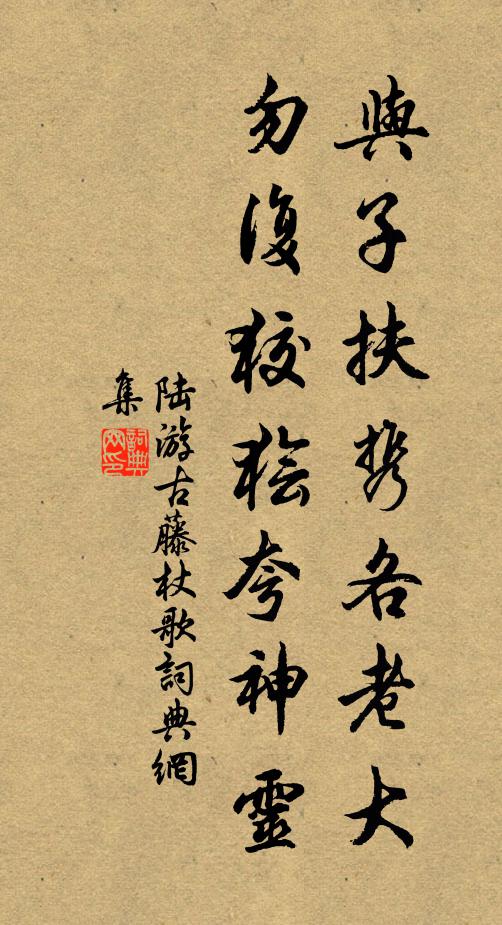 與子扶携各老大
勿復狡獪夸神靈
陆游古藤杖歌詞典網
集
詞典
网印